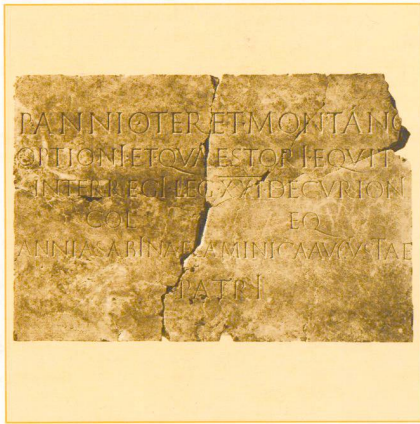 P ANNIO TER ET MONTANO
OPTIONI ET QVAESTORI EQVIT
INTERREGI LEG XXI DECVRION
COL EQ
ANNIA SABINA FLAMINICA AVGVSTAE
PATRI